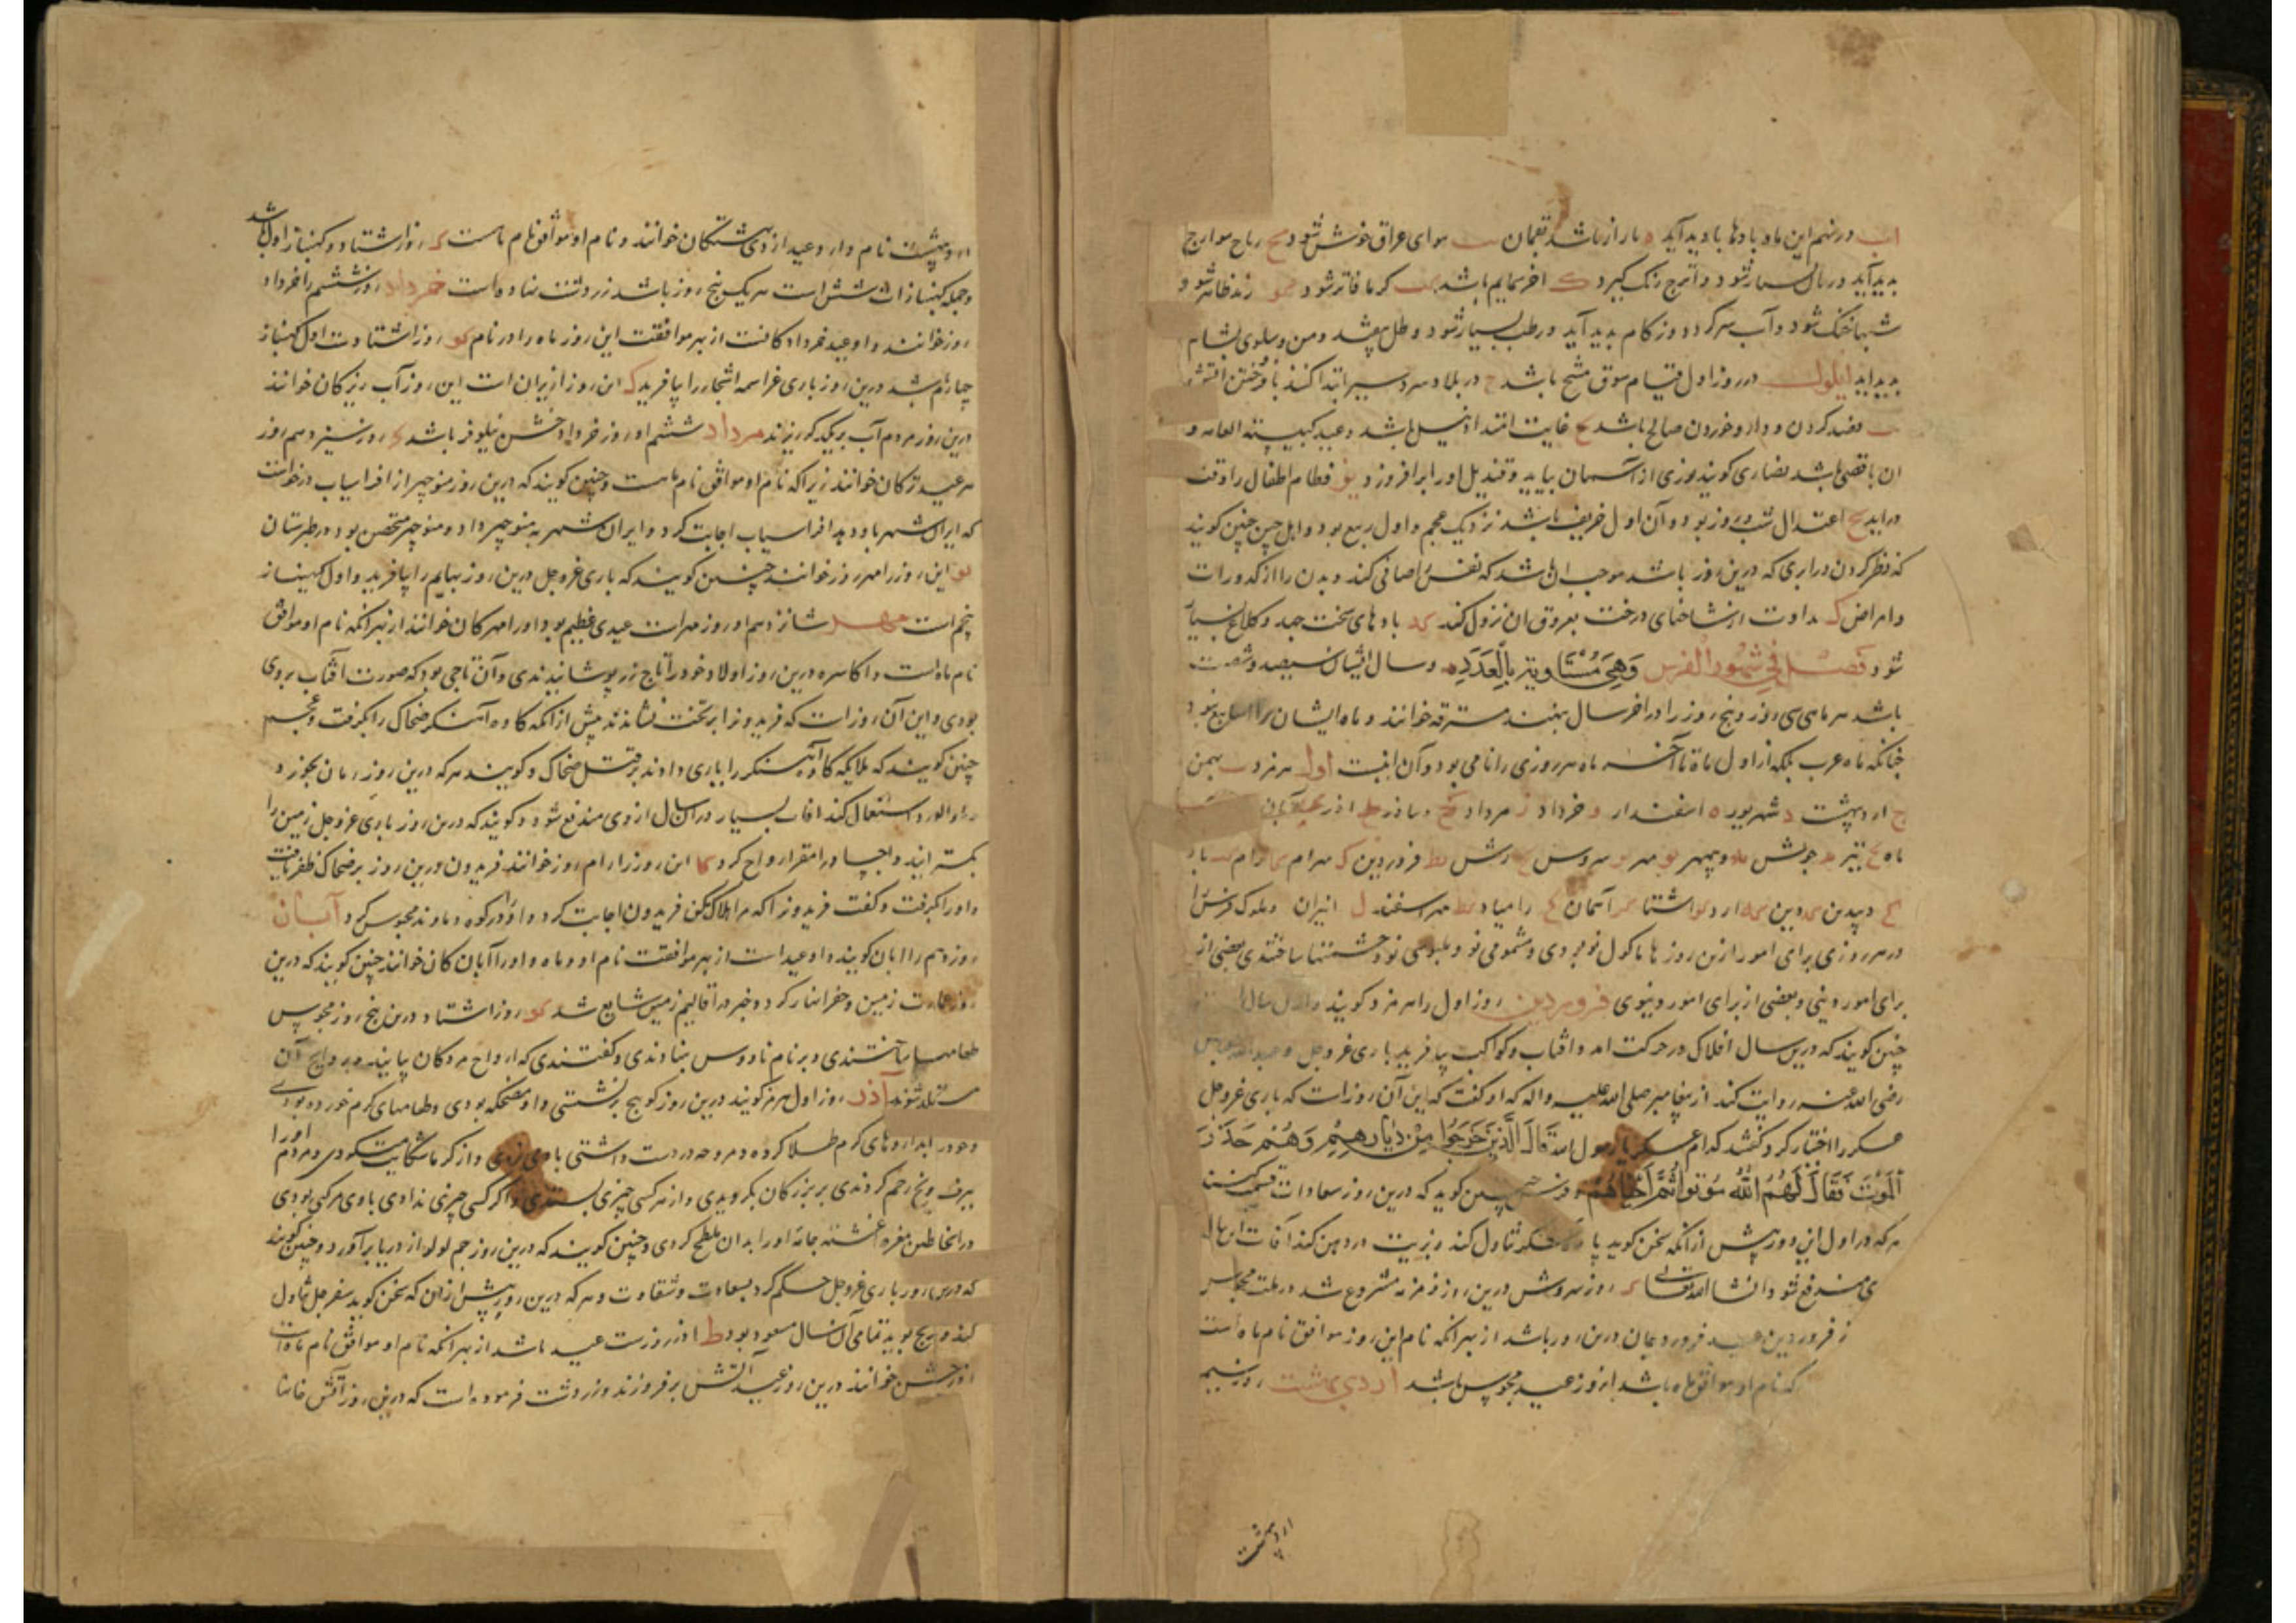 اب در نهم این ماه بادها بادید آید باران باشد هوای عراق خوش شود رباح هوا رج
بدید آید در نال بسیار شود و اترج رنگ گیرد ک اخر سمایم باشد کرما فاتر شود
شبها خنک شود و آب سرد کردد و زکام بدید آید و رطب بسیار شود و طل بیفتد و من و سلوی بشام
بدید اید ایلول در روز اول قیام سوق منبج باشد در بلاد سردسیر ابتدا کنند بافروختن اتش
فصد کردن و دارو خوردن صالح باشد غایت امتداد نیل باشد و عید کنیسه القمامه و
ان باقصی باشد نصاری کویند نوری از آسمان بیاید و قندیل او را برافروزد یو فطام اطفال را وقت
دراید یح اعتدال شب و روز بود و آن اول خریف باشد نزدیک عجم و اول ربیع بود و اهل چین چنین کویند
که نظر کردن در ابری که درین روز باشد موجب ان باشد که نفس را صافی کند و بدن را از کدورات
و امراض ک نداوت از شاخهای درخت بعروق ان نزول کند کد بادهای سخت جهد و کلاغ بسیار
شود فصل فی شهور الفرس وهی متساویة بالعدد و سال ایشان سیصد و شصت
باشد هر ماهی سی روز و پنج روز را در اخر سال بنهند مسترقه خوانند و ماه ایشان را اسابیع نبود
چنانکه ماه عرب بلکه از اول ماه تا آخر ماه هر روزی را نامی بود و آن اینست اول هرمز ب بهمن
ج اردبهشت د شهریور ه اسفندار و خرداد ز مرداد ح دیباذر ط اذر ی آبان
ماه تیر جوش دیبمهر مهر سروش رشن فروردین بهرام رام باد
دیبدین دین ارد اشتاد آسمان رامیاد مهراسفند ل انیران و ملوک فرس را
در هر روزی برای امور ازین روزها ماکول نو بودی و مشمومی نو و ملبوسی نو و جشنها ساختندی بعضی از
برای امور دینی و بعضی از برای امور دنیوی فروردین روز اول را هرمزد کویند و اول سال
چنین کویند که درین سال افلاک در حرکت امد و افتاب و کواکب بیافرید باری عز و جل و عبدالله عباس
رضی الله عنه روایت کند از پیغامبر صلی الله علیه و اله که او کفت که این آن روز است که باری عز و جل
عسکر را اختیار کرد کفتند کدام عسکر یا رسول الله قال الذین خرجوا من دیارهم وهم حذر
الموت فقال لهم الله موتوا ثم احیاهم و فرس چنین کوید که درین روز سعادات قسمت کنند
هر که در اول این روز پیش از آنکه سخن کوید پاره شکر تناول کند و زیت در دهن کند آفات ان سال
از وی مندفع شود انشا الله تعالی روز سروش درین روز زمزمه مشروع شد در ملت مجوس
ز فروردین عید فروردجان درین روز باشد از بهر انکه نام این روز موافق نام ماه است
که نام او موافق ماه باشد انروز عید مجوس باشد اردی بهشت روز سیم
اردبهشت
اردبهشت نام دارد و عید از وی بهشتکان خوانند و نام او موافق نام ماهست روز اشتاد و کهنباز اول باشد
و جمله کهنبازات شش است هر یک پنج روز باشد زردشت نهاده است خرداد روز ششم را خرداد
روز خوانند و او عید خردادکانست از بهر موافقت این روز ماه را در نام کو روز اشتادست اول کهنباز
چهارم باشد درین روز باری عز اسمه اشجار را بیافرید ل این روز از ایران است این روز آب ریزکان خوانند
درین روز مردم آب بر یکدیکر ریزند مرداد ششم او روز خرداد جشن نیلوفر باشد روز سیزدهم روز
هر عید ترکان خوانند زیرا که نام او موافق نام ماهست و چنین کویند که درین روز منوچهر از افراسیاب درخواست
که ایران شهر باو دهد افراسیاب اجابت کرد و ایران شهر به منوچهر داد و منوچهر متحصن بود در طبرستان
یو این روز را مهر روز خوانند چنین کویند که باری عز و جل درین روز بهایم را بیافرید و اول کهنباز
پنجم است مهر شانزدهم او روز مهر است عیدی عظیم بود او را مهرکان خوانند از بهر انکه نام او موافق
نام ماه است و اکاسره درین روز اولاد خود را تاج زر پوشانیدندی و آن تاجی بود که صورت آفتاب بر وی
بودی و این آن روز است که فریدون را بر تخت نشاندند پیش از آنکه کاوه آهنکر ضحاک را بکرفت و عجم
چنین کویند که ملایکه کاوه آهنکر را یاری دادند بر قتل ضحاک و کویند هر که درین روز رمان بخورد
کلاب استعمال کند افات بسیار در ان سال از وی مندفع شود و کویند که درین روز باری عز و جل زمین را
بکسترانید و اجساد را مقر ارواح کرد کا این روز را رام روز خوانند فریدون درین روز بر ضحاک ظفر یافت
و او را بکرفت و کفت فریدون را که مرا هلاک مکن فریدون اجابت کرد و او را در کوه دماوند محبوس کرد آبان
روز دهم را ابان کویند و او عید است از بهر موافقت نام او و ماه و او را آبان کان خوانند چنین کویند که درین
روز عمارت زمین و حفر انهار کرد و خبر در اقالیم زمین شایع شد کو روز اشتاد درین پنج روز مجوس
طعامها ساختندی و بر نام ناووس نهادندی و کفتندی که ارواح مردکان بیایند و بروایح آن
متلذذ شوند آذر روز اول هرمز کویند درین روز کوسج برنشستی و او مضحکه بودی و طعامهای کرم خورده بودی
و خود را بداروهای کرم طلا کرده و مروحه در دست داشتی باد می زدی و از کرما شکایت میکردی و مردم او را
ببرف و یخ رجم کردندی بر بزرکان بکردیدی و از هر کسی چیزی بستدی و اکر کسی چیزی ندادی با وی مرکبی بودی
در انجا طین مغره اغشته جامه او را بدان ملطخ کردی و چنین کویند که درین روز جم لولو از دریا برآورد و چنین کویند
که درین روز باری عز و جل حکم کرد بسعادت و شقاوت و هر که درین روز پیش از ان که سخن کوید سفرجل تناول
کند و ترنج بوید تمامی آن سال مسعود بود ط اذر روزست عید باشد از بهر انکه نام او موافق نام ماه است
اذرجشن خوانند درین روز عید آتش برفروزند و زردشت فرموده است که درین روز آتش خانها